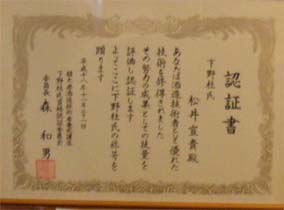 認証書
下野杜氏
松井宣貴殿
あなたは酒造技術者として優れた
技術を修得されました
その努力の成果としての技量を
評価し認証します
よってここに下野杜氏の称号を
贈ります
平成十八年十一月二十一日
下野杜氏資格認証委員会
委員長 森 和男